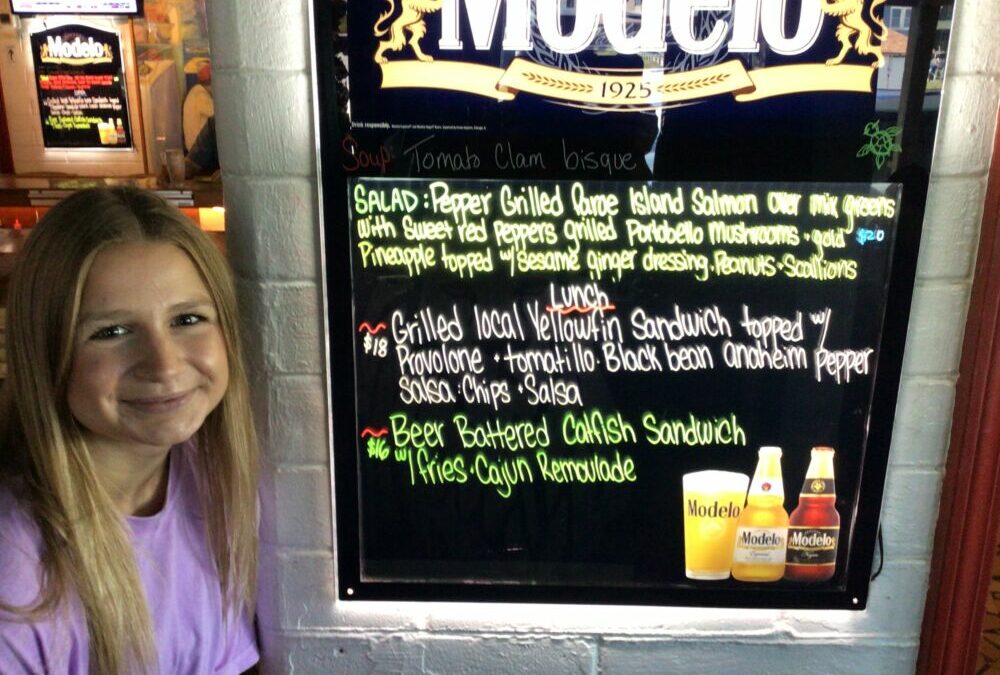 Modelo
1925
Drink responsibly.
Soup: Tomato Clam bisque
SALAD: Pepper Grilled Faroe Island Salmon over mix greens
with Sweet red peppers grilled Portobello mushrooms · gold $20
Pineapple topped w/ sesame ginger dressing · Peanuts · Scallions
Lunch
~ Grilled local Yellowfin Sandwich topped w/
$18 Provolone · tomatillo · Black bean anaheim pepper
salsa · Chips · Salsa
~ Beer Battered Catfish Sandwich
$16 w/ fries · Cajun Remoulade
Modelo
Modelo
Modelo
Modelo